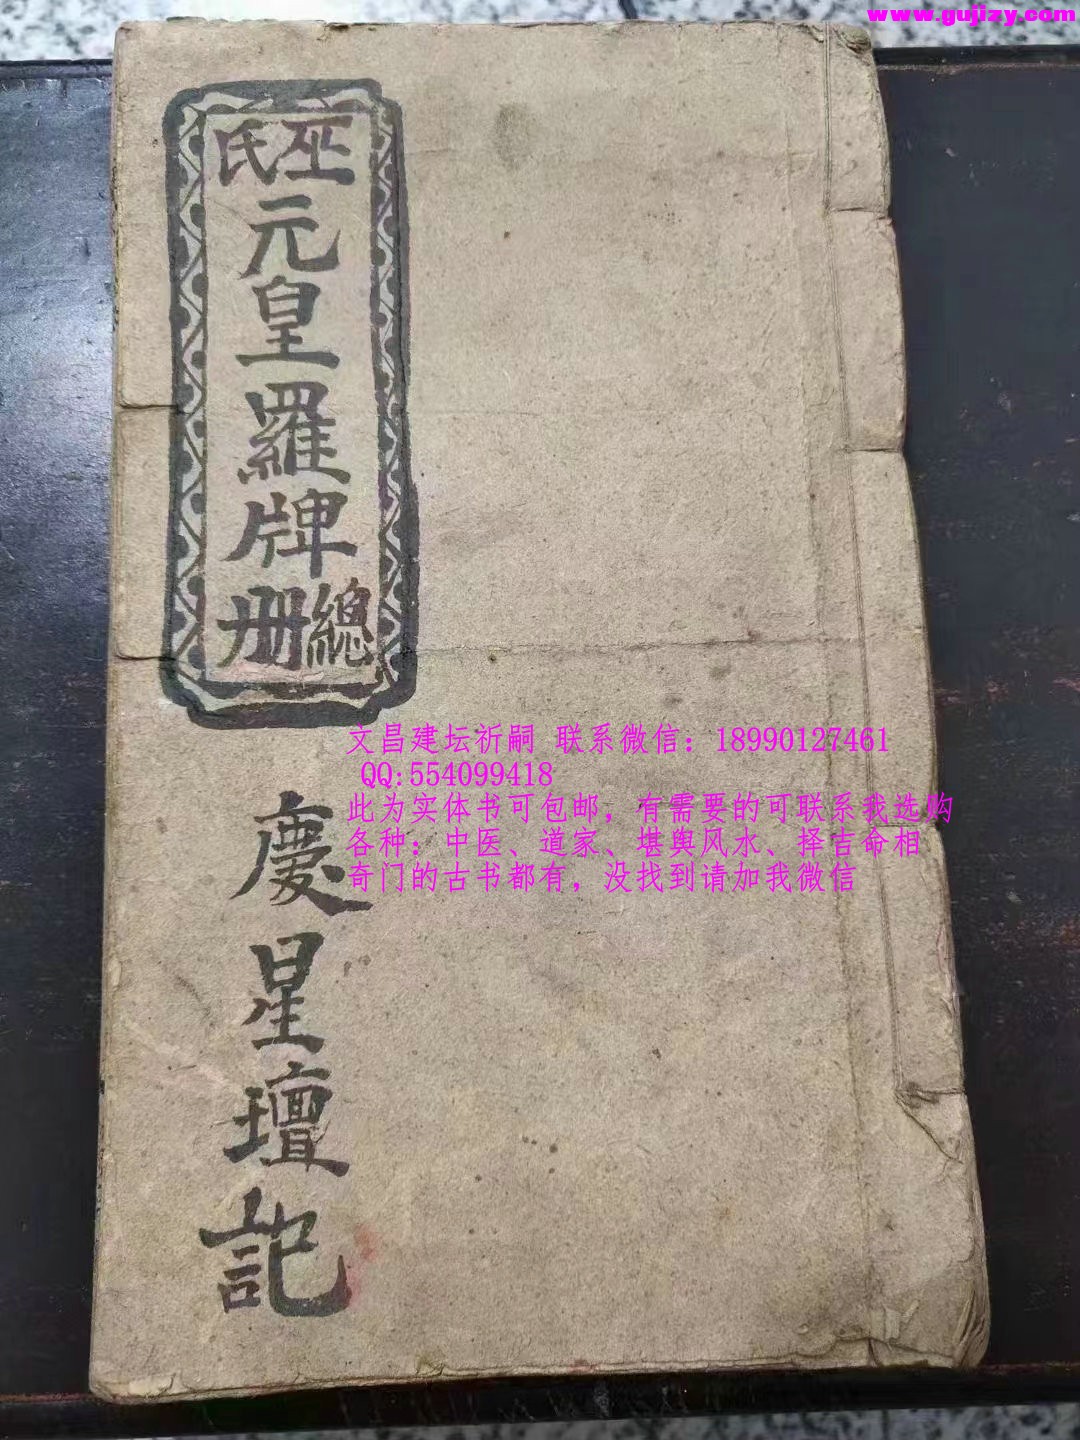 www.gujizy.com
巫氏
元皇羅牌
總册
慶星壇記
文昌建坛祈嗣 联系微信：18990127461
QQ:554099418
此为实体书可包邮，有需要的可联系我选购
各种：中医、道家、堪舆风水、择吉命相
奇门的古书都有，没找到请加我微信